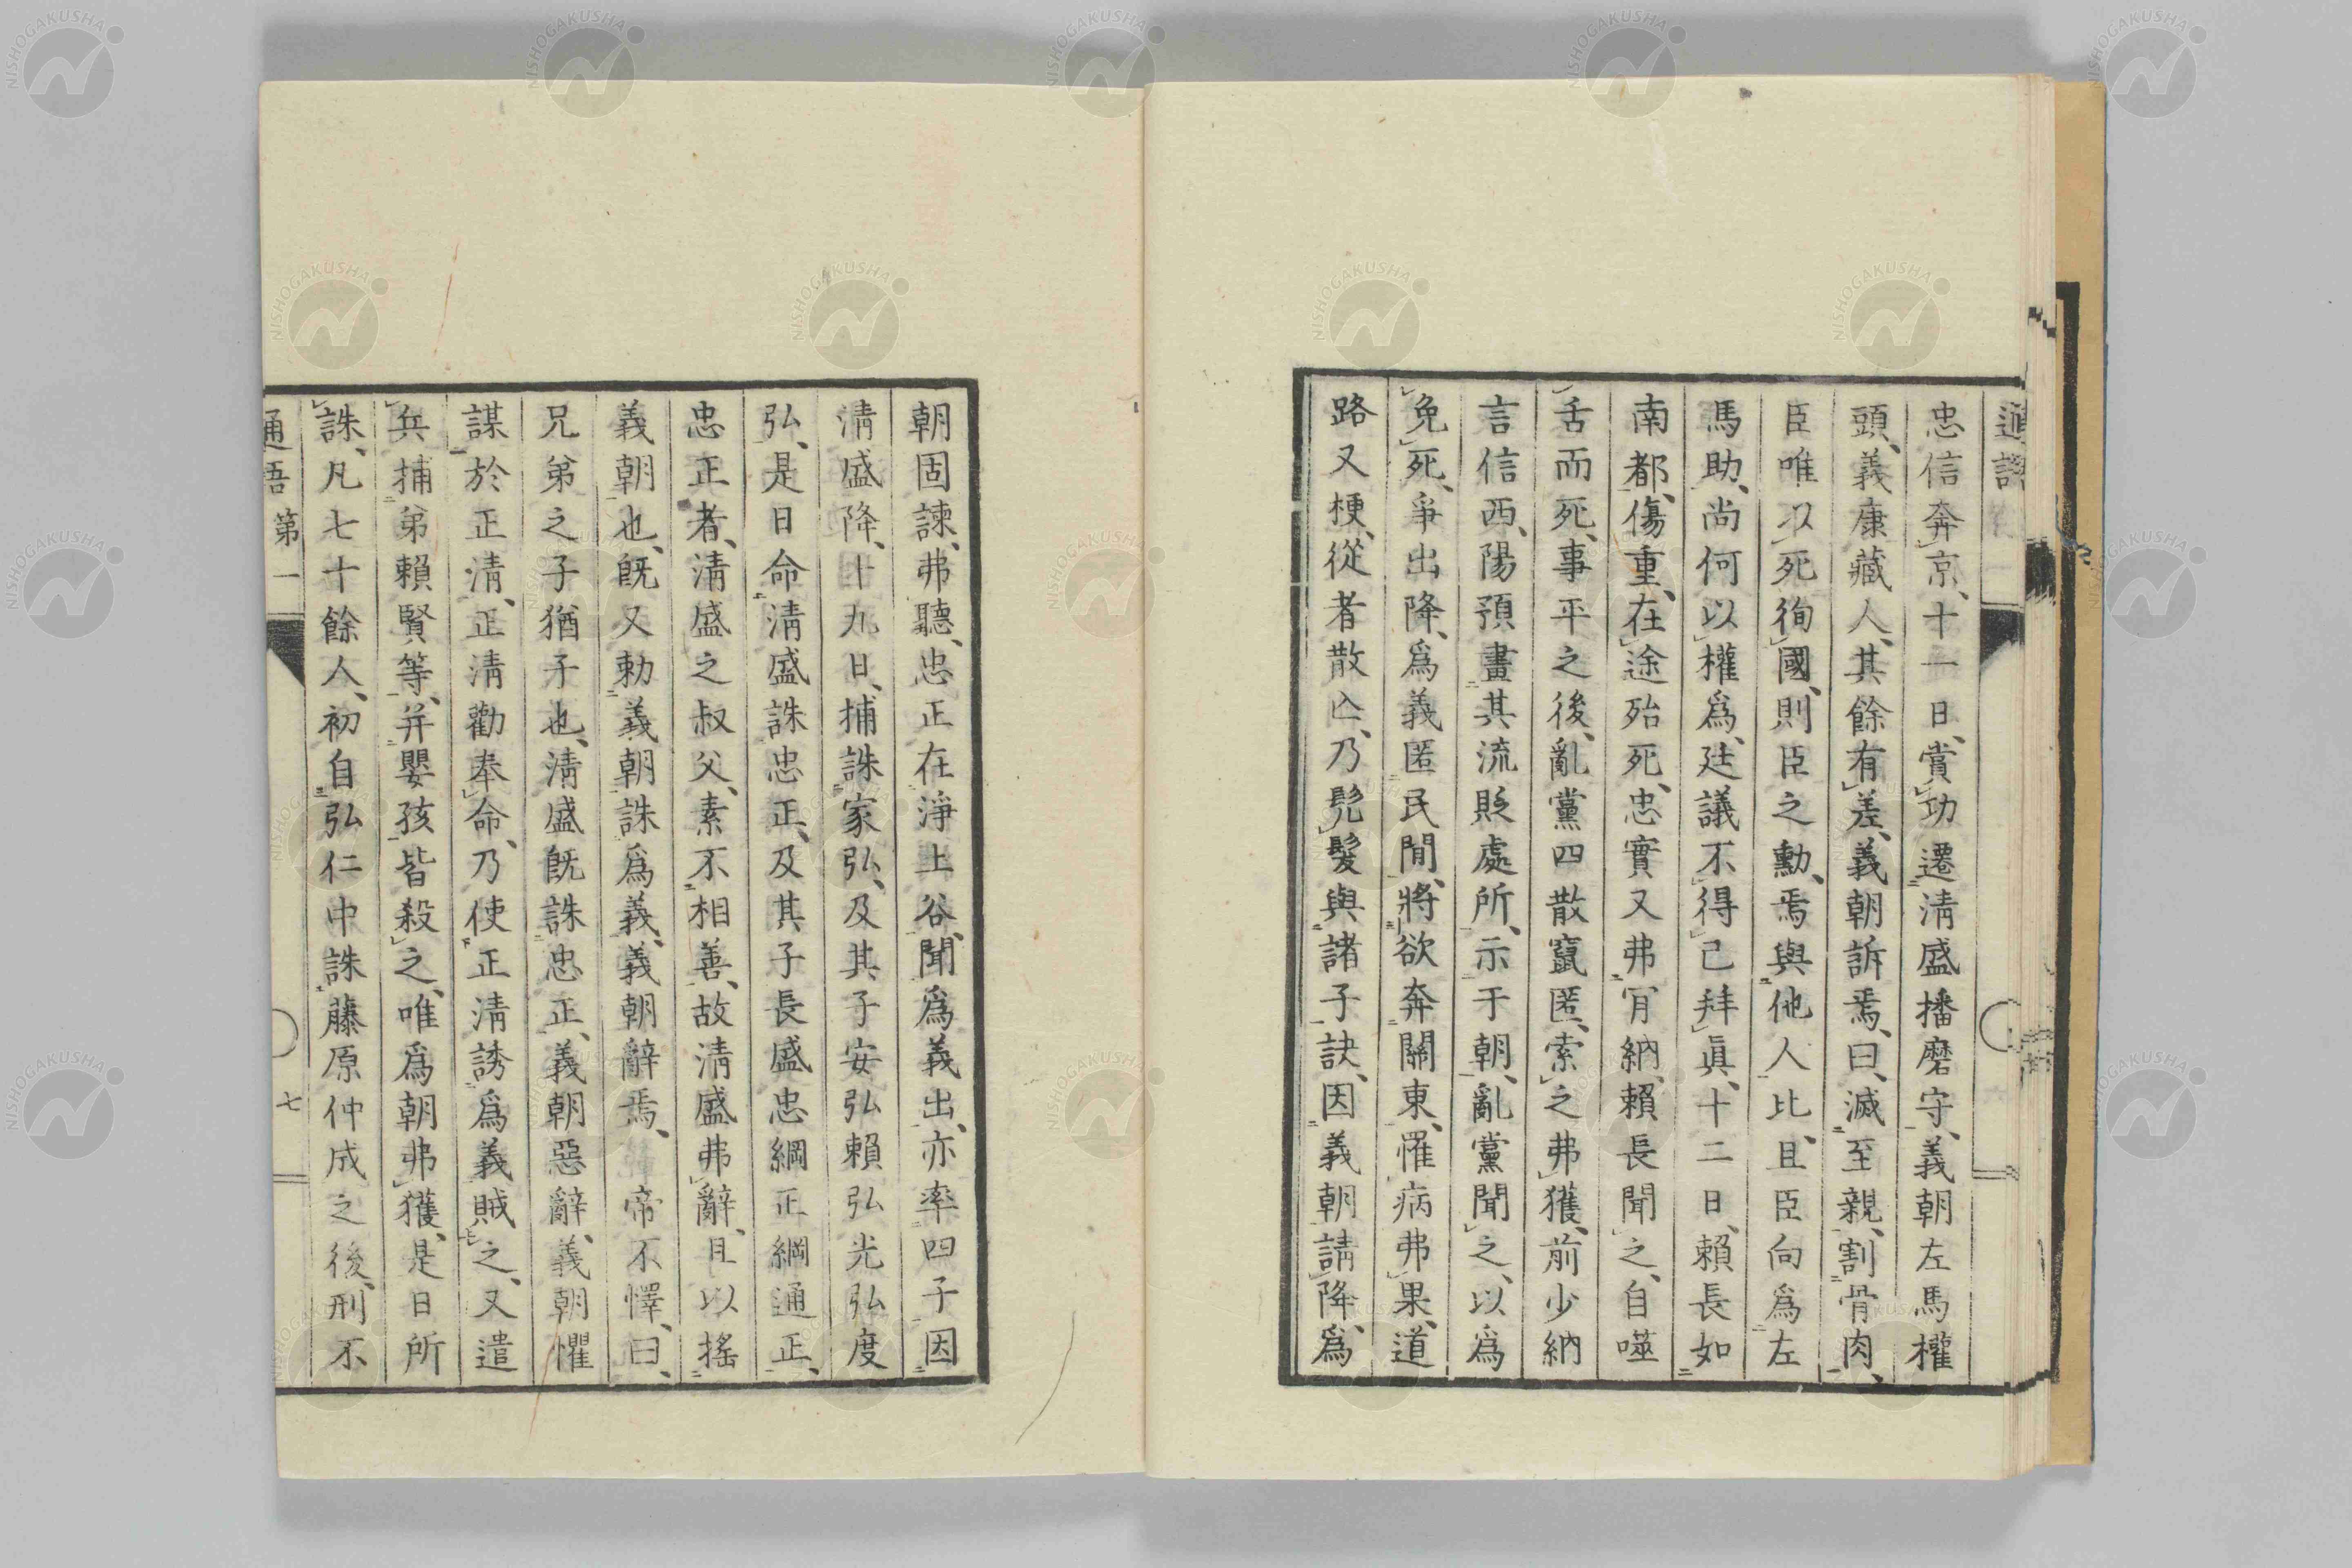 忠信奔京、十一日、賞功遷清盛播磨守、義朝左馬權
頭、義康藏人、其餘有差、義朝訴焉、曰、滅至親、割骨肉、
臣唯以死徇國、則臣之勳、焉與他人比、且臣向爲左
馬助、尚何以權爲、廷議不得已拜眞、十二日、賴長如
南都、傷重、在途殆死、忠實又弗肯納、賴長聞之、自噬
舌而死、事平之後、亂黨四散竄匿、索之弗獲、前少納
言信西、陽預畫其流貶處所、示于朝、亂黨聞之、以爲
免死、爭出降、爲義匿民間、將欲奔關東、罹病弗果、道
路又梗、從者散亾、乃髡髮與諸子訣、因義朝請降、爲
朝固諫、弗聽、忠正在淨土谷、聞爲義出、亦率四子因
清盛降、十九日、捕誅家弘、及其子安弘賴弘光弘度
弘、是日命清盛誅忠正、及其子長盛忠綱正綱通正、
忠正者、清盛之叔父、素不相善、故清盛弗辭、且以搖
義朝也、既又勅義朝誅爲義、義朝辭焉、帝不懌、曰、
兄弟之子猶子也、清盛既誅忠正、義朝惡辭、義朝懼
謀於正清、正清勸奉命、乃使正清誘爲義賊之、又遣
兵捕弟賴賢等、并嬰孩皆殺之、唯爲朝弗獲、是日所
誅、凡七十餘人、初自弘仁中誅藤原仲成之後、刑不
通語 第一 七
NISHOGAKUSHA